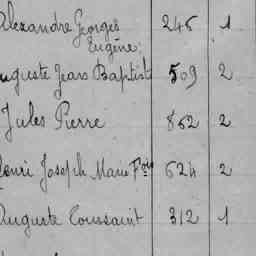 Alexandre Georges 246 1
Eugène.
Auguste Jean Baptiste 509 2
Jules Pierre 862 2
Henri Joseph Marie Fois 624 2
Auguste Toussaint 312 1